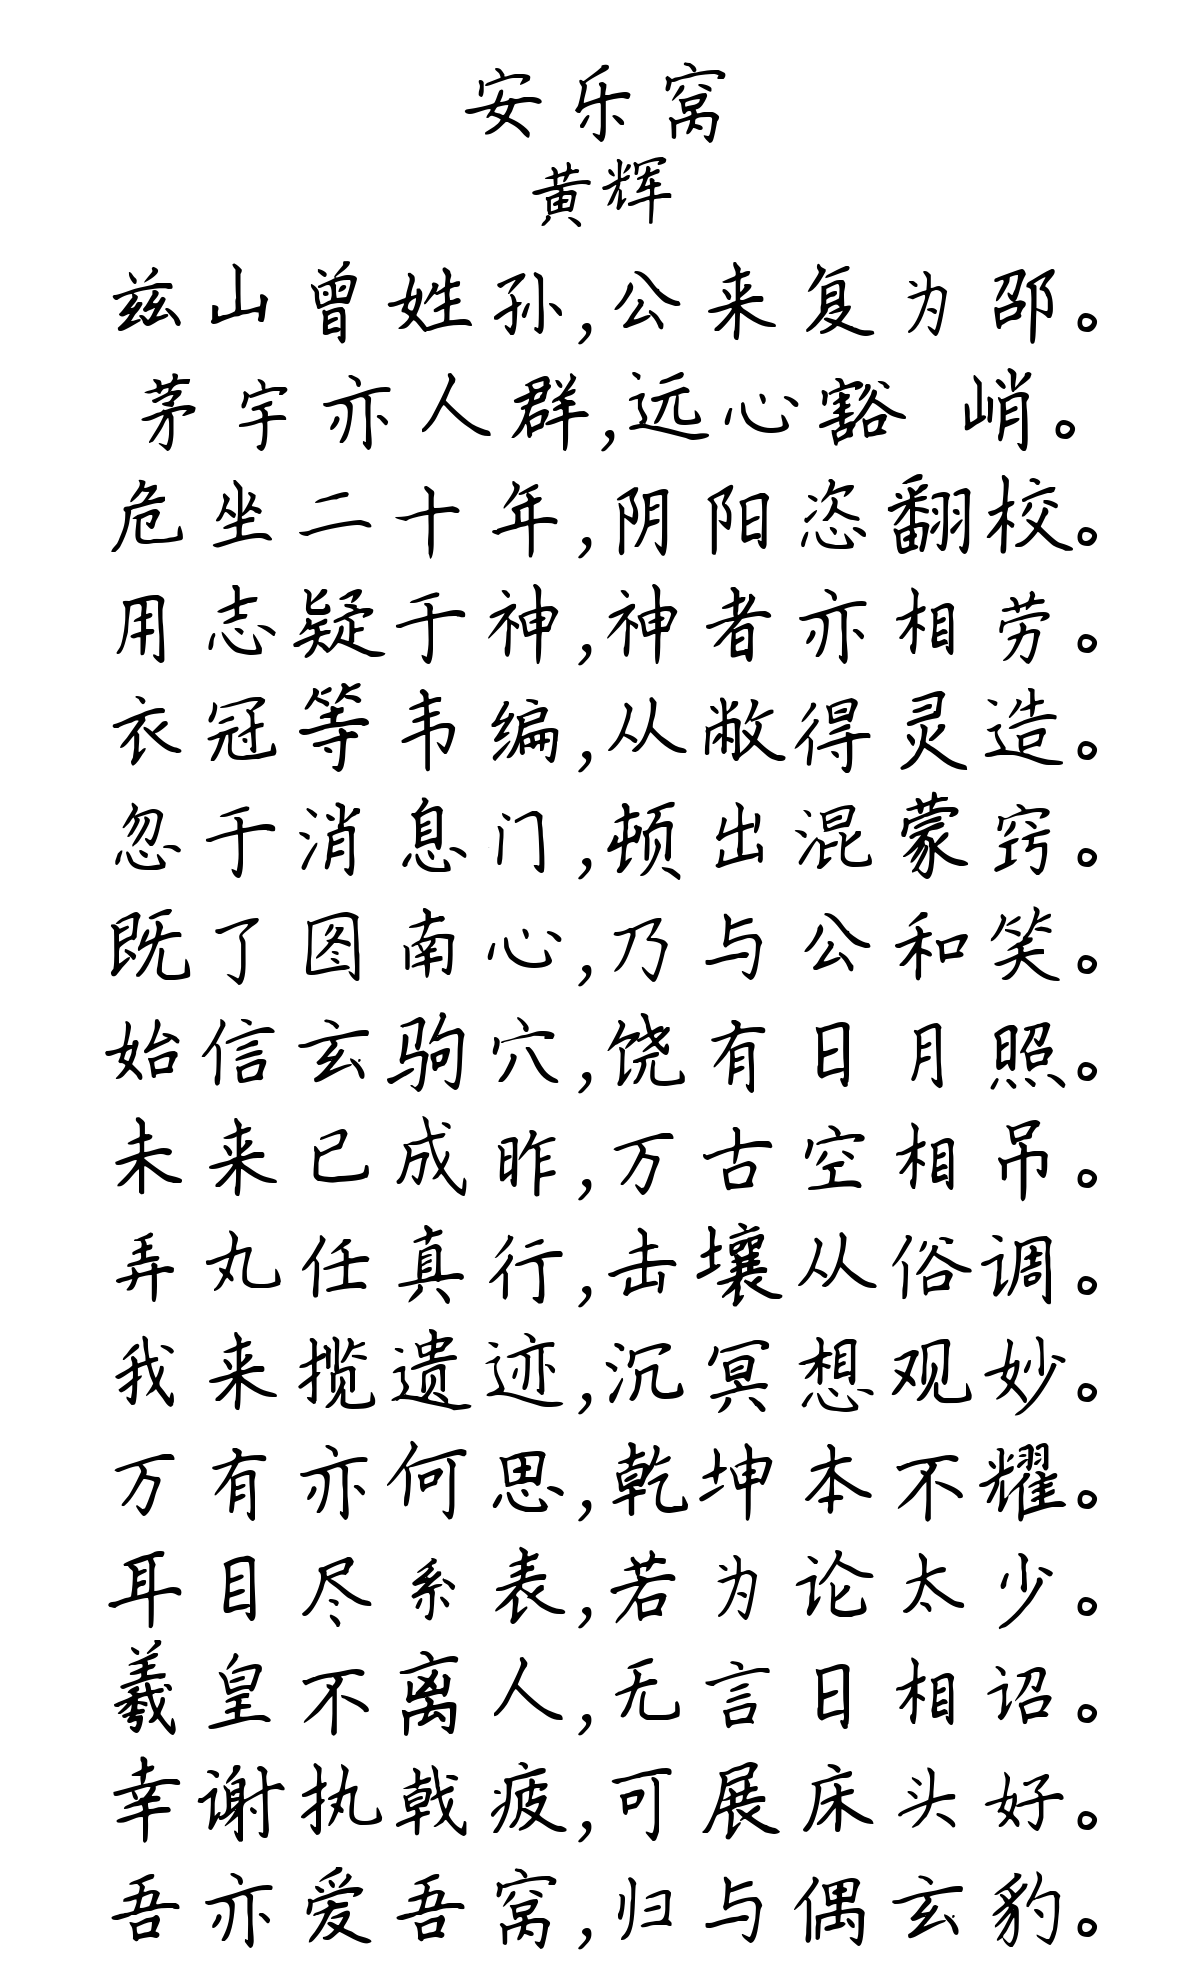 安乐窝
黄辉
兹山曾姓孙,公来复为邵。
茅宇亦人群,远心豁 峭。
危坐二十年,阴阳恣翻校。
用志疑于神,神者亦相劳。
衣冠等韦编,从敝得灵造。
忽于消息门,顿出混蒙窍。
既了图南心,乃与公和笑。
始信玄驹穴,饶有日月照。
未来已成昨,万古空相吊。
弄丸任真行,击壤从俗调。
我来揽遗迹,沉冥想观妙。
万有亦何思,乾坤本不耀。
耳目尽系表,若为论太少。
羲皇不离人,无言日相诏。
幸谢执戟疲,可展床头好。
吾亦爱吾窝,归与偶玄豹。